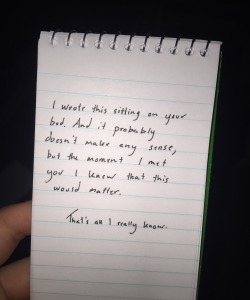 I wrote this sitting on your
bed. And it probably
doesn't make any sense,
but the moment I met
you I knew that this
would matter.
That's all I really know.